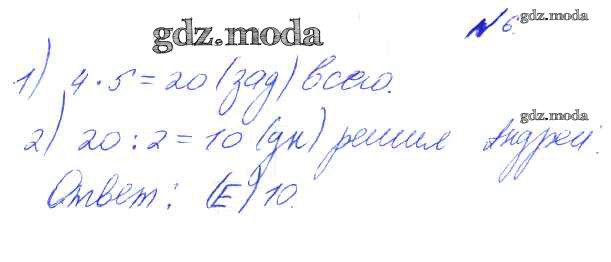 gdz.moda
№ 6.
gdz.moda
1) 4 · 5 = 20 (зад) всего.
gdz.moda
2) 20 : 2 = 10 (дн) решил Андрей.
Ответ: (E) 10.